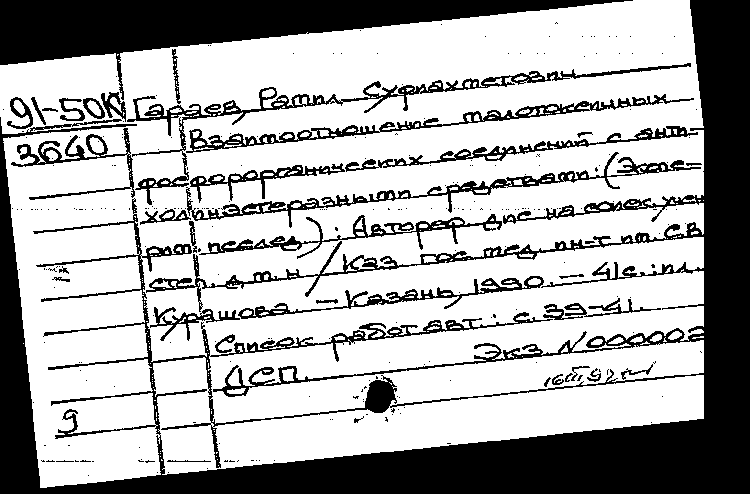 91-50К Гараев, Рамил Суфиахметович
3640 Взаимоотношение малотоксичных
фосфорорганических соединений с анти-
холинэстеразными средствами: (Экспе-
рим. исслед.) : Автореф. дис. на соиск. учен
степ. д. м. н / Каз. гос. мед. ин-т им. С.В
Курашова. - Казань, 1990. - 41 с. : ил.
Список работ авт.: с. 39-41.
ДСП. Экз. N 000002
9